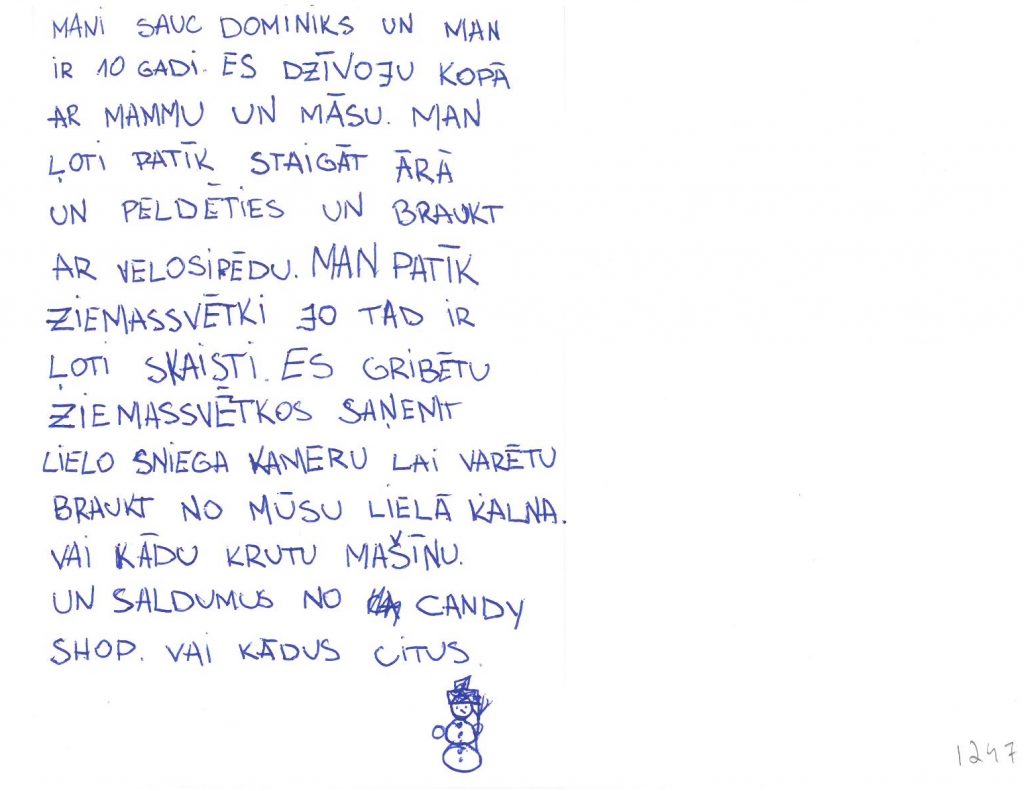 MANI SAUC DOMINIKS UN MAN
IR 10 GADI. ES DZĪVOJU KOPĀ
AR MAMMU UN MĀSU. MAN
ĻOTI PATĪK STAIGĀT ĀRĀ
UN PELDĒTIES UN BRAUKT
AR VELOSIPĒDU. MAN PATĪK
ZIEMASSVĒTKI JO TAD IR
ĻOTI SKAISTI. ES GRIBĒTU
ZIEMASSVĒTKOS SAŅEMT
LIELO SNIEGA KAMERU LAI VARĒTU
BRAUKT NO MŪSU LIELĀ KALNA.
VAI KĀDU KRUTU MAŠĪNU.
UN SALDUMUS NO CANDY
SHOP. VAI KĀDUS CITUS.
1247